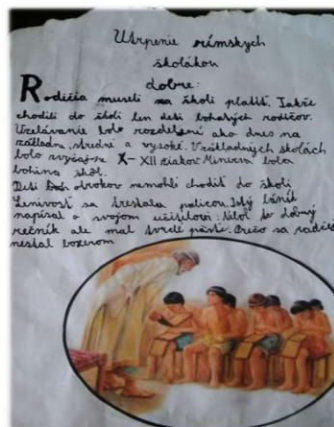 Utrpenie rímskych
školákov
dobre:
Rodičia museli na školi platiť. Takže
chodili do školi len deti bohatých rodičov.
Vzelávanie bolo rozdelené ako dnes na
základne, stredné a vysoké. V základných školách
bolo zvyčajne X-XII žiakov. Minerva bola
bohiňa škôl.
Deti otrokov nemohli chodiť do školi
Lenivosť sa trestala palicou. Istý básnik
napísal o svojom učiteľovi: Nebol to dobrý
rečník ale mal tvrdé päste. Prečo sa radšej
nestal boxerom